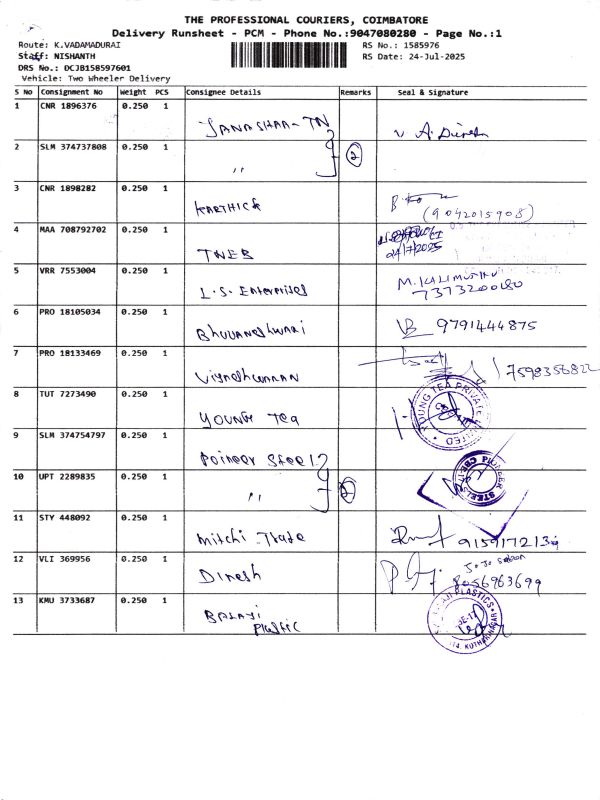 THE PROFESSIONAL COURIERS, COIMBATORE
Delivery Runsheet - PCM - Phone No.:9047080280 - Page No.:1
Route: K.VADAMADURAI RS No.: 1585976
Staff: NISHANTH RS Date: 24-Jul-2025
DRS No.: DCJB158597601
Vehicle: Two Wheeler Delivery
S No Consignment No Weight PCS Consignee Details Remarks Seal & Signature
1 CNR 1896376 0.250 1
JANASHAA-TN
2 SLM 374737808 0.250 1 2
,,
3 CNR 1898282 0.250 1
KARTHICK (9042015908)
4 MAA 708792702 0.250 1
TNEB 24/7/2025
5 VRR 7553004 0.250 1
L.S. Enterprises 7373200080
6 PRO 18105034 0.250 1
Bhuvaneshwari 9791444875
7 PRO 18133469 0.250 1
Vigneshwaran 7598356822
8 TUT 7273490 0.250 1
YOUNG TEA YOUNG TEA PRIVATE LIMITED
9 SLM 374754797 0.250 1
Poineer Steel
10 UPT 2289835 0.250 1 2
,,
11 STY 448092 0.250 1
Mitchi Trade
12 VLI 369956 0.250 1
Dinesh 8056963699
13 KMU 3733687 0.250 1
BALAJI
Plastic